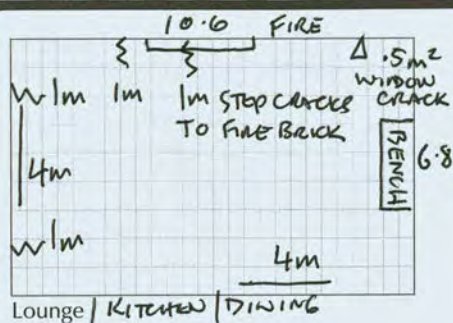 10.6 FIRE
.5m²
WIDOW
CRACK
1m 1m 1m STEP CRACKS
TO FIRE BRICK
BENCH
6.8
4m
1m
4m
Lounge / KITCHEN / DINING